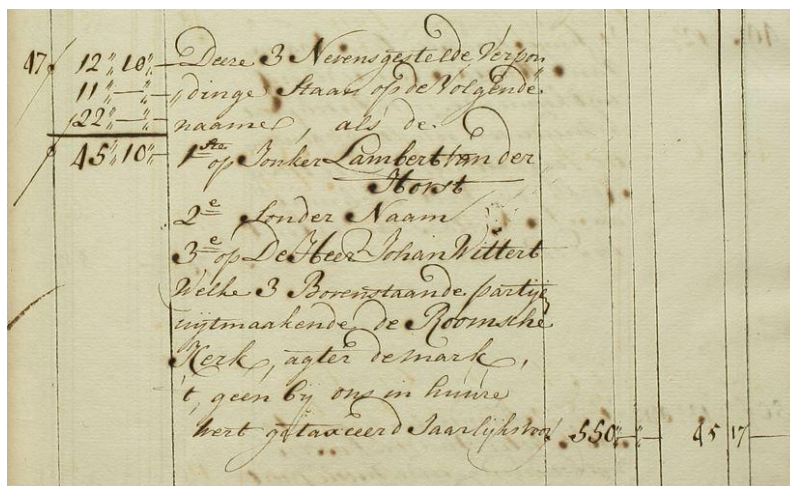 47 / 12 " 10 " — Deese 3 Nevensgestelde Verpon
11 " — " — " dinge Staan op de Volgende
22 " — " — naame, als de
45 " 10 " — 1ste op Jonker Lambert van der
Horst
2e Sonder Naam
3e op De Heer Johan Wittert
Welke 3 Bovenstaande partije
uijtmaakende de Roomsche
Kerk, agter de mark,
't, geen bij ons in huure
wert getaxeerd Jaarlijks voor 550 " — " — 45 17 —